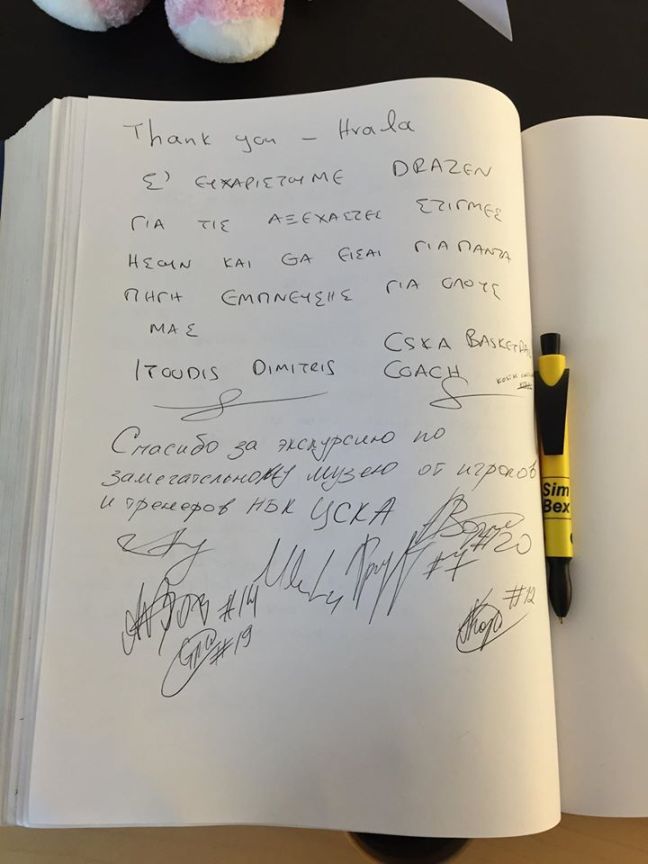 Thank you – Hvala
Σ' ΕΥΧΑΡΙΣΤΟΥΜΕ DRAZEN
ΓΙΑ ΤΙΣ ΑΞΕΧΑΣΤΕΣ ΣΤΙΓΜΕΣ
ΗΣΟΥΝ ΚΑΙ ΘΑ ΕΙΣΑΙ ΓΙΑ ΠΑΝΤΑ
ΠΗΓΗ ΕΜΠΝΕΥΣΗΣ ΓΙΑ ΟΛΟΥΣ
ΜΑΣ
ITOUDIS DIMITRIS CSKA BASKETBAL
COACH
Спасибо за экскурсию по
замечательному музею от игроков
и тренеров НБК ЦСКА
#20
#7
#14 #12
#19
Sim
Bex